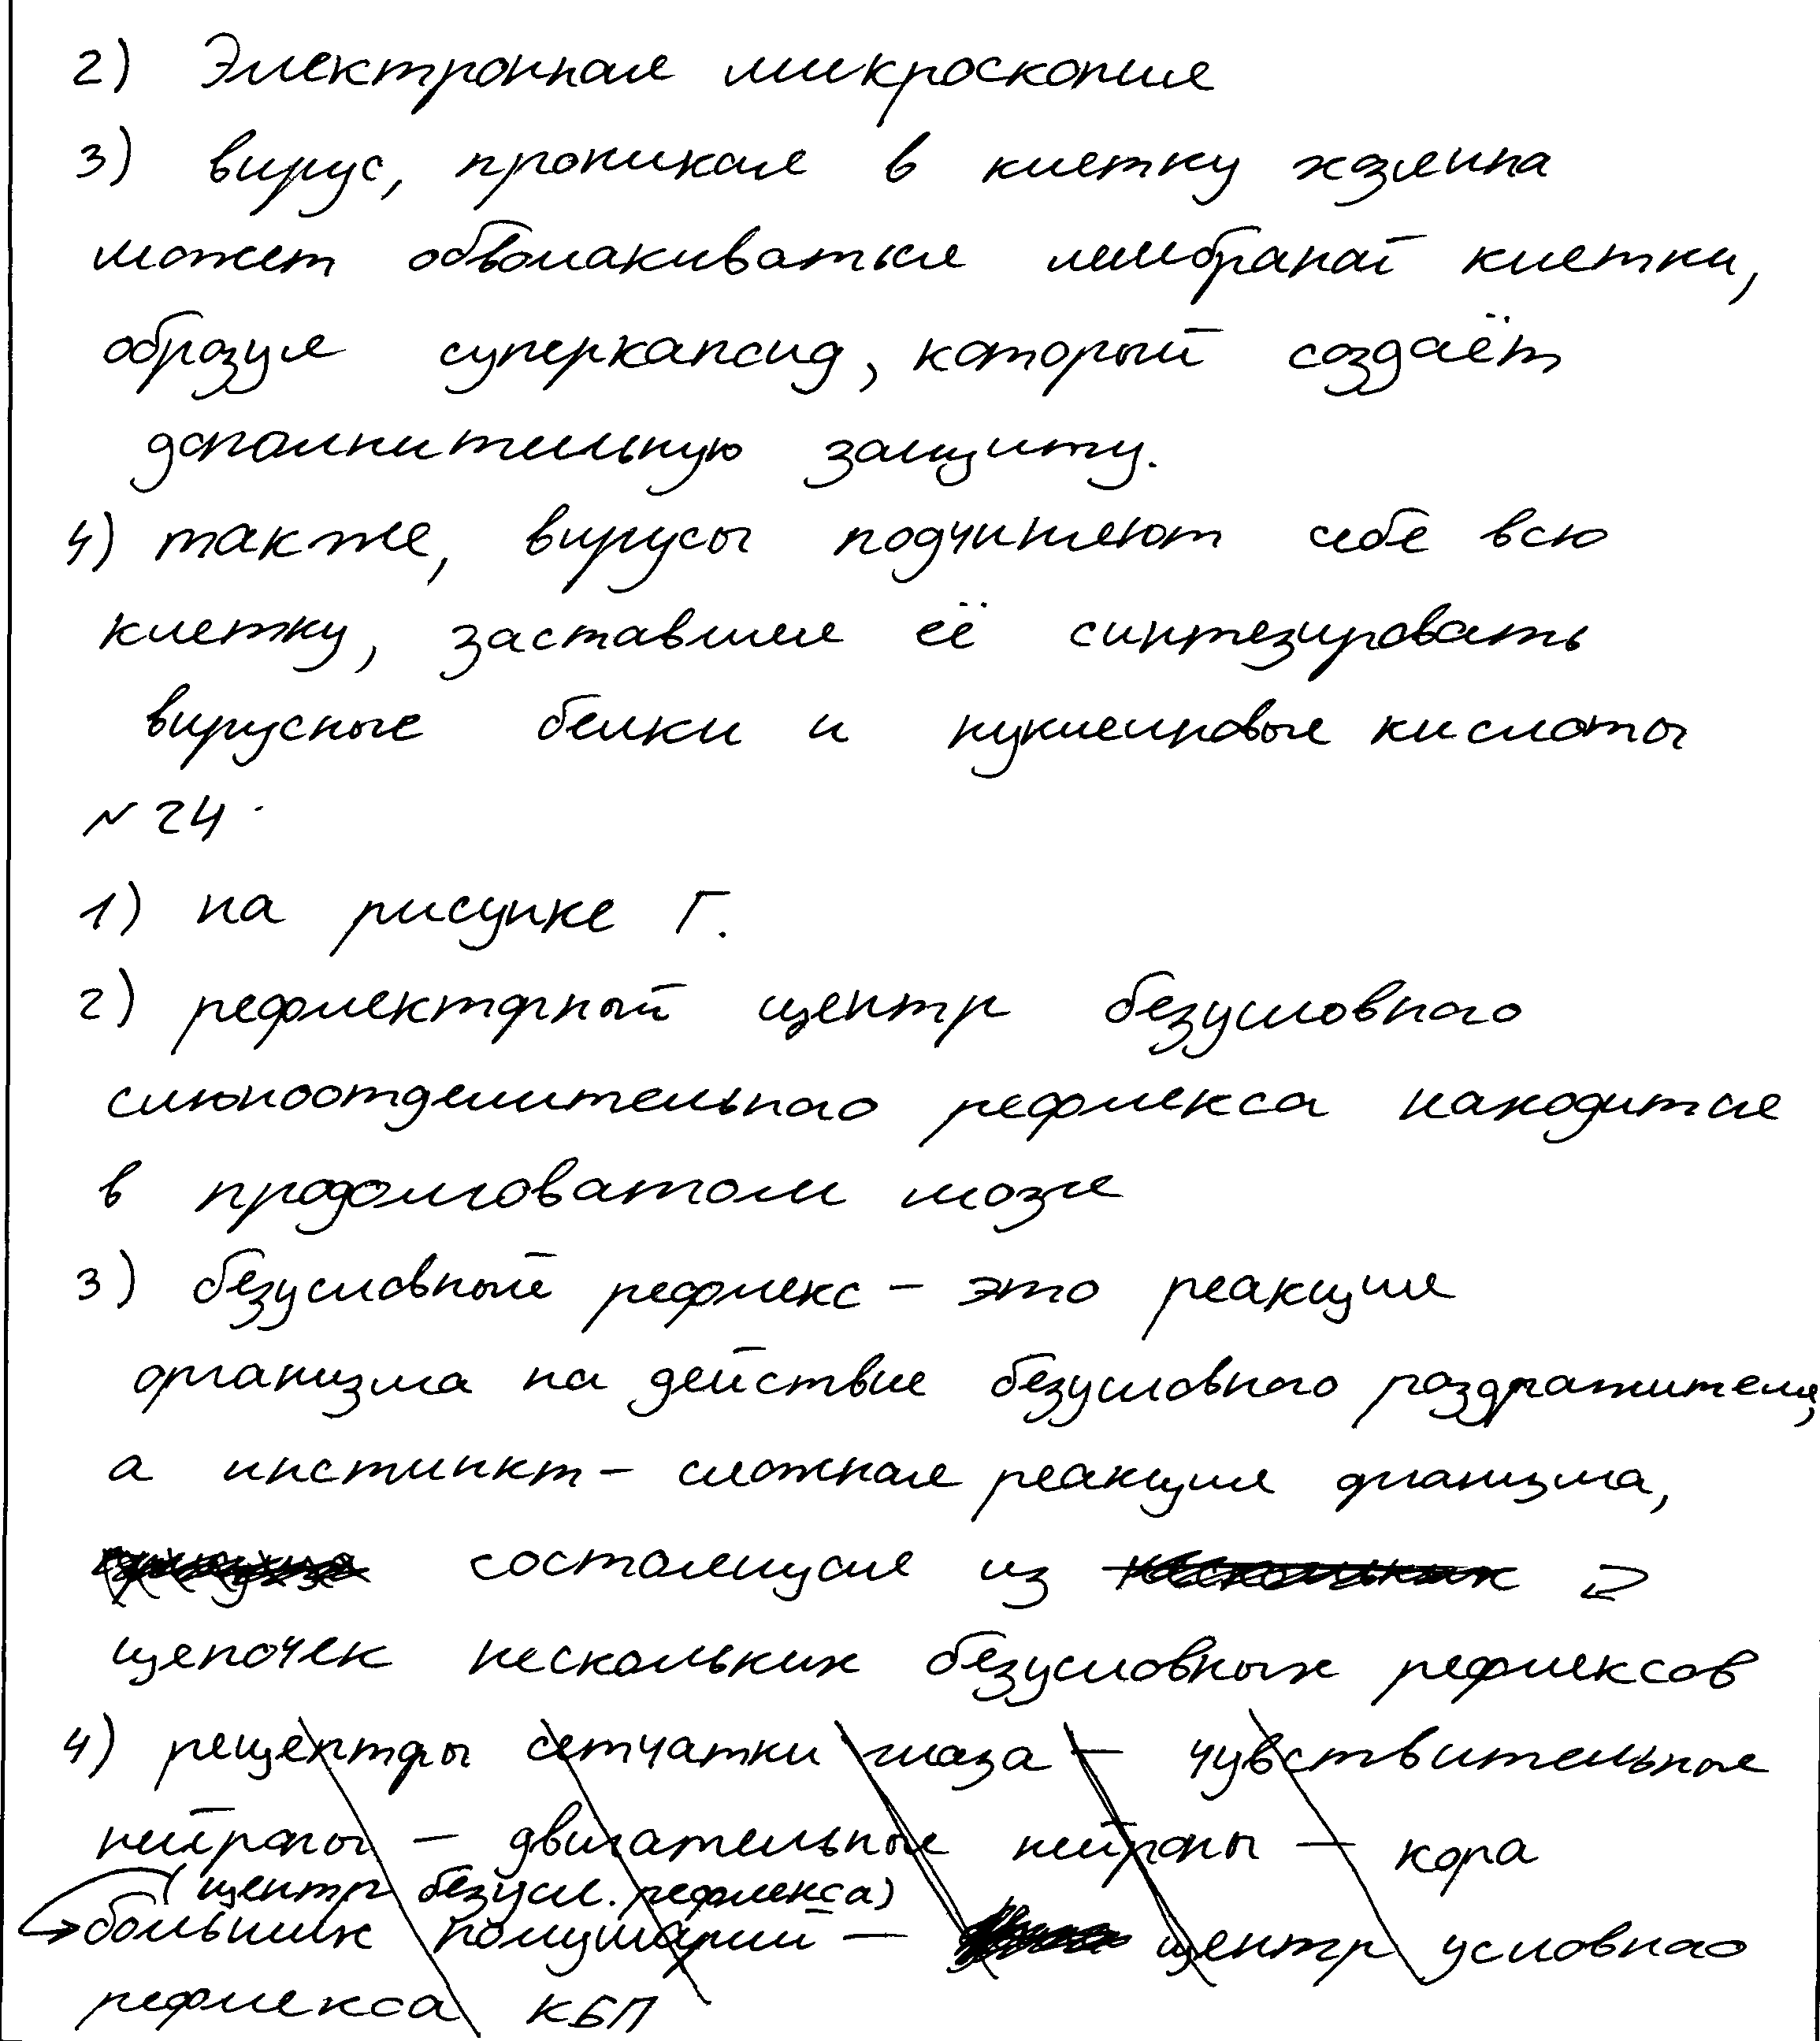 2) Электронная микроскопия
3) вирус, проникая в клетку хозяина
может обволакиваться мембраной клетки,
образуя суперкапсид, который создаёт
дополнительную защиту.
4) также, вирусы подчиняют себе всю
клетку, заставляя её синтезировать
вирусные белки и нуклеиновые кислоты
№24
1) на рисунке Г.
2) рефлекторный центр безусловного
слюноотделительного рефлекса находится
в продолговатом мозге
3) безусловный рефлекс – это реакция
организма на действие безусловного раздражителя,
а инстинкт – сложная реакция организма,
состоящая из
цепочек нескольких безусловных рефлексов
4) рецепторы сетчатки глаза – чувствительные
нейроны – двигательные нейроны – кора
(центр безусл. рефлекса)
больших полушарий – центр условного
рефлекса КБП